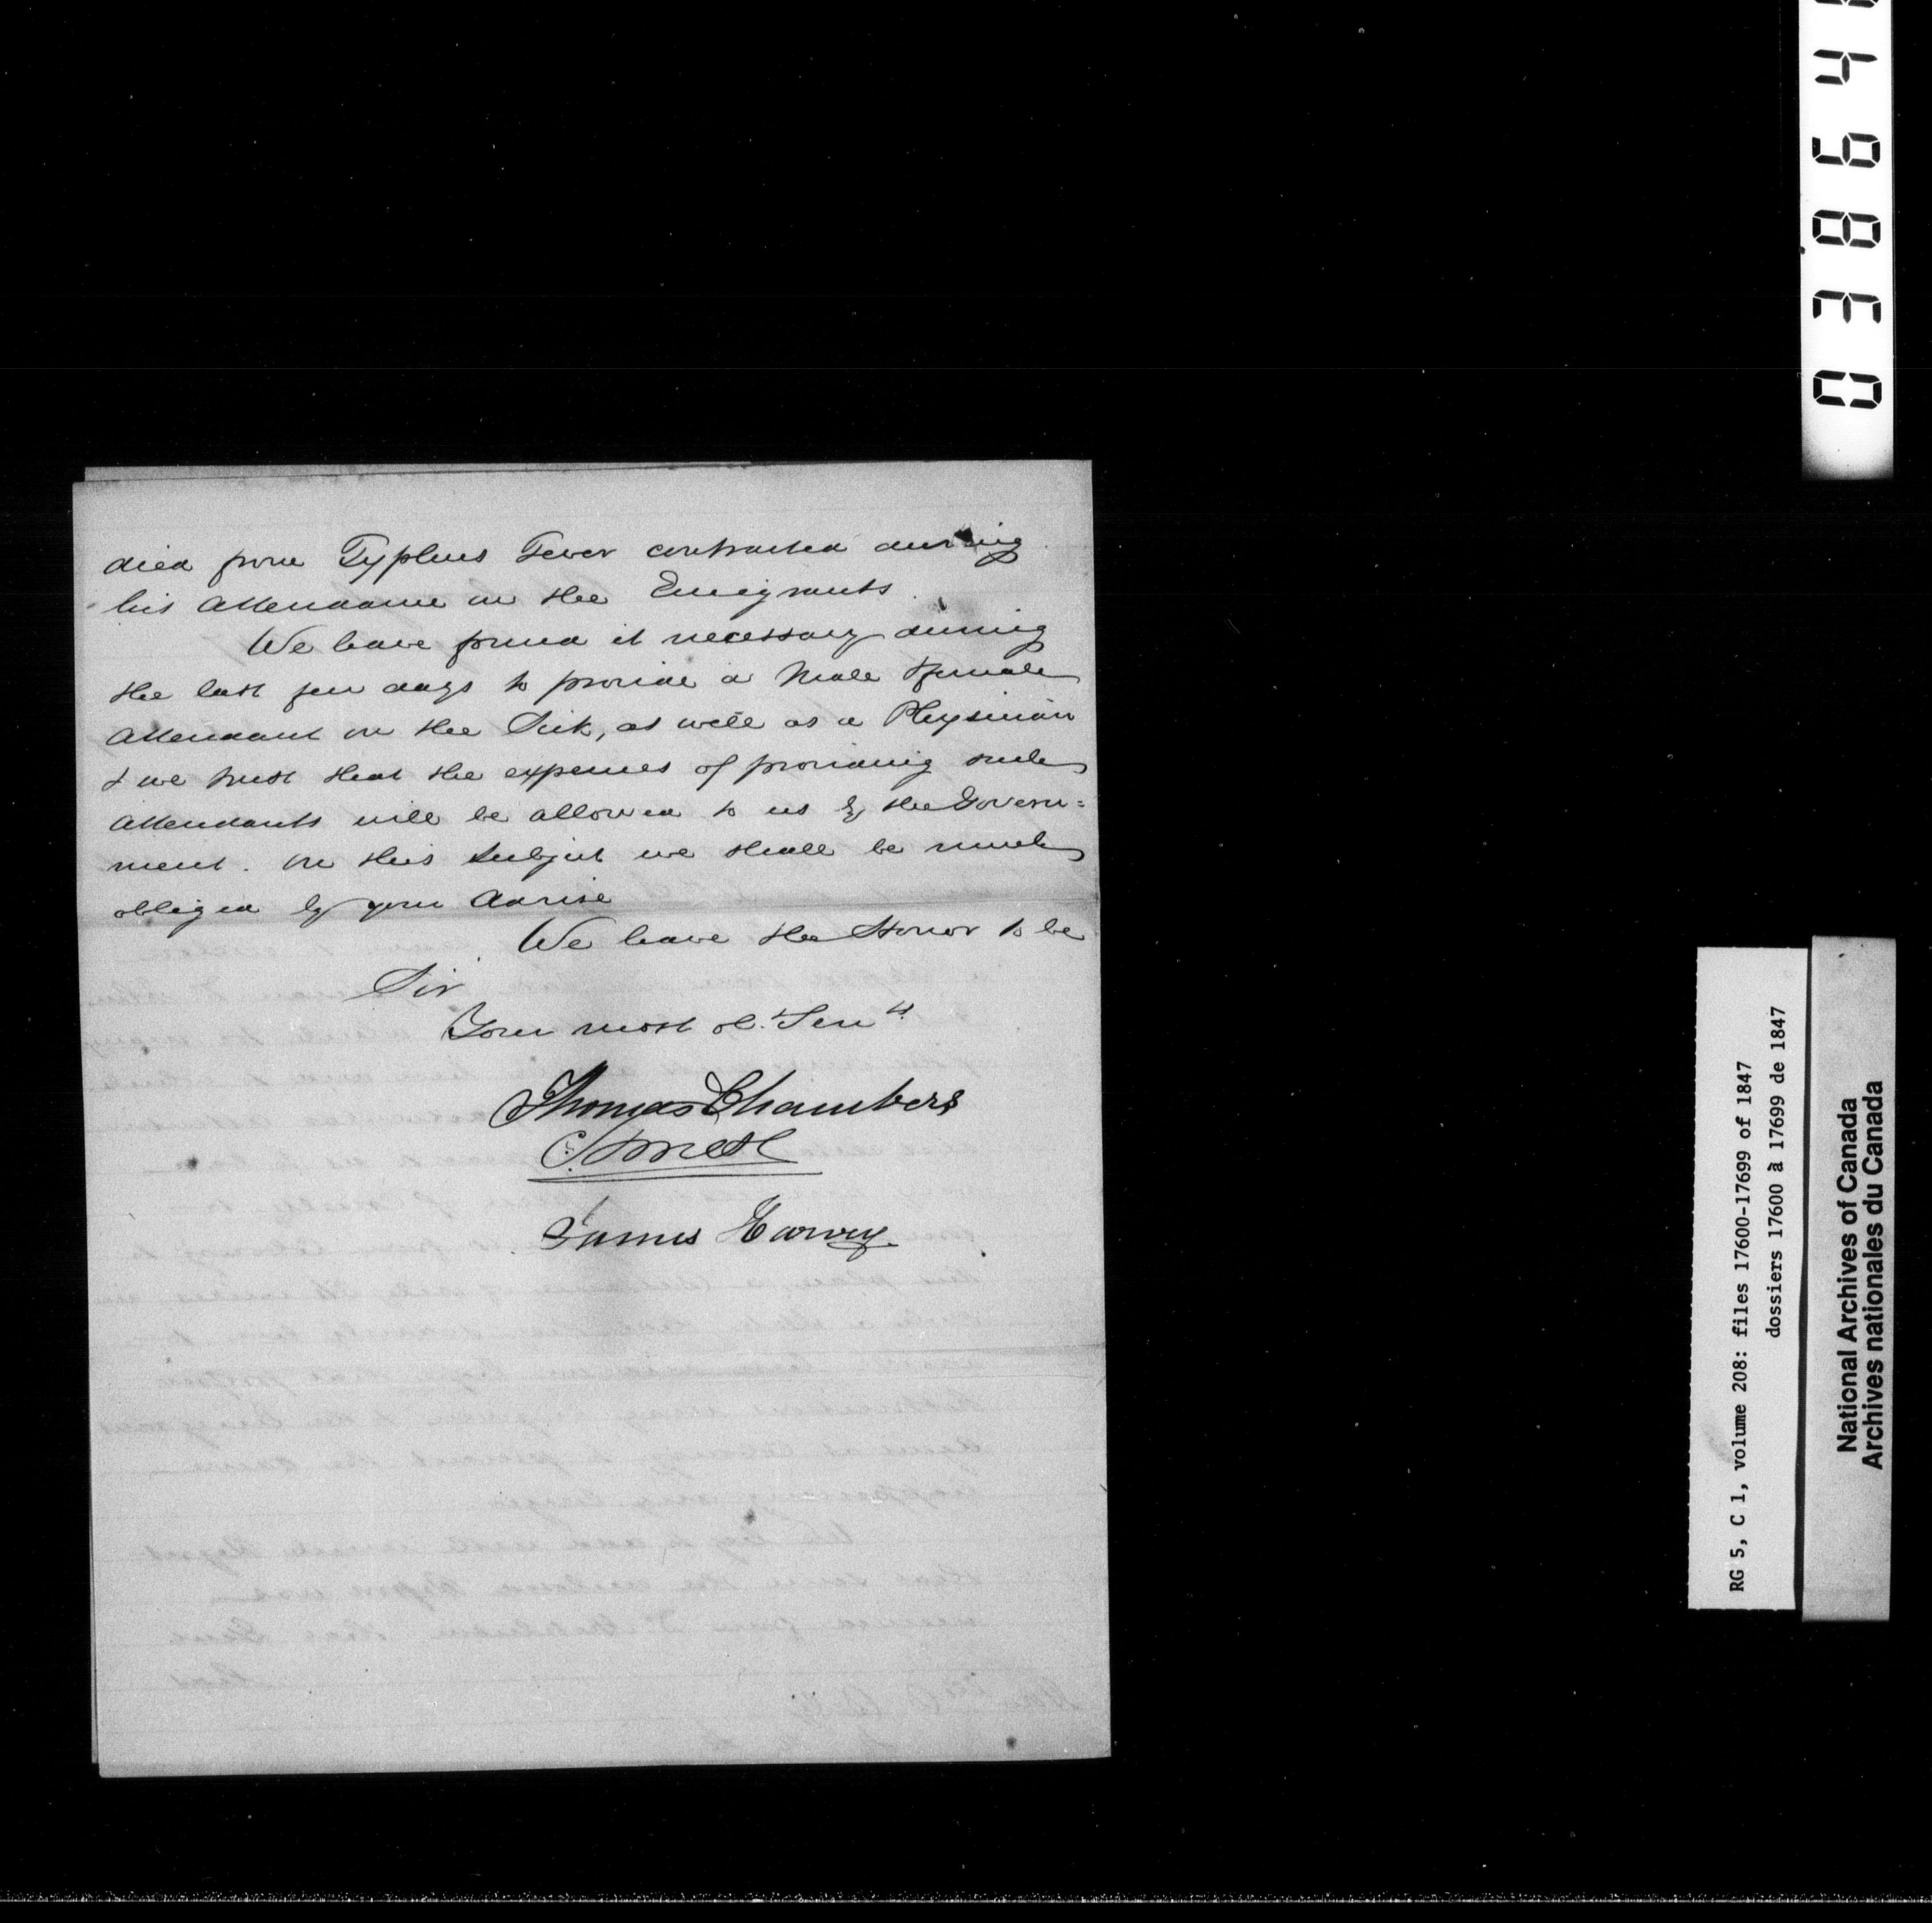 died from Typhus Fever contracted during
his Attendance on the Emigrants.
We have found it necessary during
the last few days to provide a Male & female
Attendant on the Sick, as well as a Physician
& we trust that the expenses of providing such
Attendants will be allowed to us by the Govern=
ment. On this subject we shall be much
obliged by your Advise
We have the Honor to be
Sir
Your most ob.t Serv.ts
Thomas Chambers
James Harvey
03864
RG 5, C 1, volume 208: files 17600-17699 of 1847
dossiers 17600 à 17699 de 1847
National Archives of Canada
Archives nationales du Canada